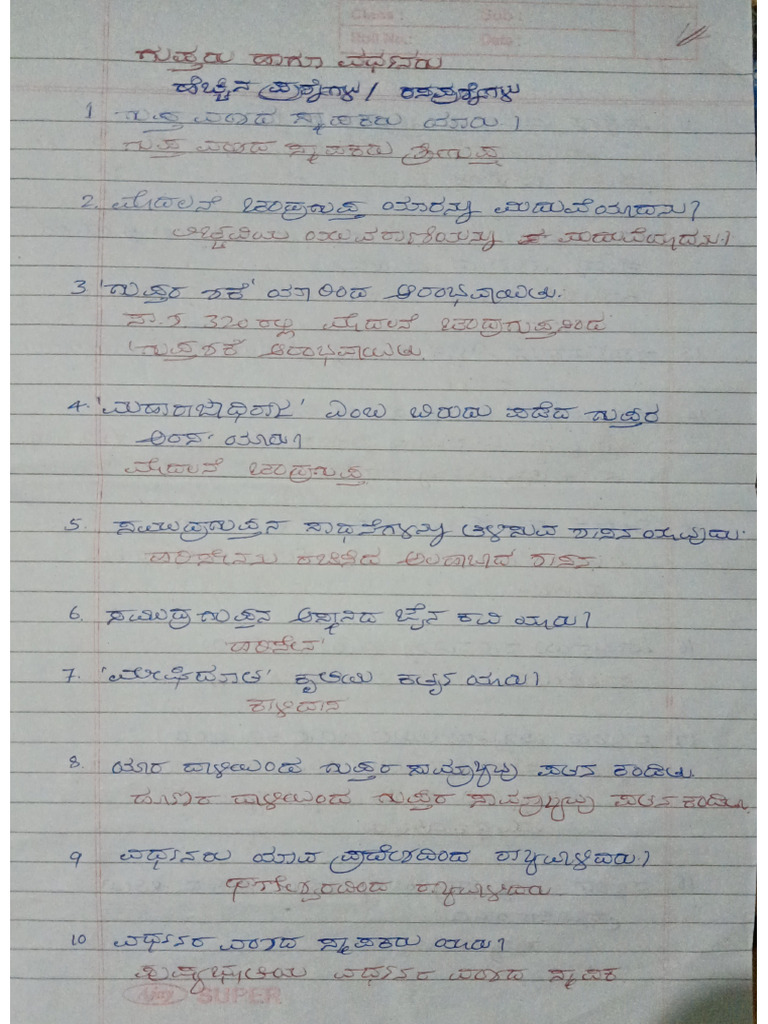 Class :
Sub :
Roll No.:
Date :
ಗುಪ್ತರು ಹಾಗೂ ವರ್ಧನರು
ಹೆಚ್ಚಿನ ಪ್ರಶ್ನೆಗಳು / ರಸಪ್ರಶ್ನೆಗಳು
1 ಗುಪ್ತ ವಂಶದ ಸ್ಥಾಪಕರು ಯಾರು?
ಗುಪ್ತ ವಂಶದ ಸ್ಥಾಪಕರು ಶ್ರೀಗುಪ್ತ
2. ಮೊದಲನೆ ಚಂದ್ರಗುಪ್ತ ಯಾರನ್ನು ಮದುವೆಯಾದನು?
ಲಿಚ್ಛವಿಯ ಯುವರಾಣಿಯನ್ನು ಮದುವೆಯಾದನು.
3 'ಗುಪ್ತರ ಶಕೆ' ಯಾರಿಂದ ಆರಂಭವಾಯಿತು.
ಸಾ.ಶ. 320 ರಲ್ಲಿ ಮೊದಲನೆ ಚಂದ್ರಗುಪ್ತನಿಂದ
'ಗುಪ್ತಶಕೆ ಆರಂಭವಾಯಿತು.
4. 'ಮಹಾರಾಜಾಧಿರಾಜ' ಎಂಬ ಬಿರುದು ಪಡೆದ ಗುಪ್ತರ
ಅರಸ ಯಾರು?
ಮೊದಲನೆ ಚಂದ್ರಗುಪ್ತ
5. ಸಮುದ್ರಗುಪ್ತನ ಸಾಧನೆಗಳನ್ನು ತಿಳಿಸುವ ಶಾಸನ ಯಾವುದು.
ಹರಿಷೇನನು ರಚಿಸಿದ ಅಲಹಾಬಾದ ಶಾಸನ.
6. ಸಮುದ್ರಗುಪ್ತನ ಆಸ್ಥಾನದ ಜೈನ ಕವಿ ಯಾರು?
'ಹರಿಸೇನ'
7. 'ಮೇಘದೂತ' ಕೃತಿಯ ಕರ್ತೃ ಯಾರು?
ಕಾಳಿದಾಸ
8. ಯಾರ ದಾಳಿಯಿಂದ ಗುಪ್ತರ ಸಾಮ್ರಾಜ್ಯವು ಪತನ ಕಂಡಿತು.
ಹೂಣರ ದಾಳಿಯಿಂದ ಗುಪ್ತರ ಸಾಮ್ರಾಜ್ಯವು ಪತನ ಕಂಡಿತು.
9 ವರ್ಧನರು ಯಾವ ಪ್ರದೇಶದಿಂದ ರಾಜ್ಯವಾಳಿದರು?
ಥಾಣೇಶ್ವರದಿಂದ ರಾಜ್ಯವಾಳಿದರು.
10 ವರ್ಧನರ ವಂಶದ ಸ್ಥಾಪಕರು ಯಾರು?
ಪುಷ್ಯಭೂತಿಯು ವರ್ಧನರ ವಂಶದ ಸ್ಥಾಪಕ
SUPER